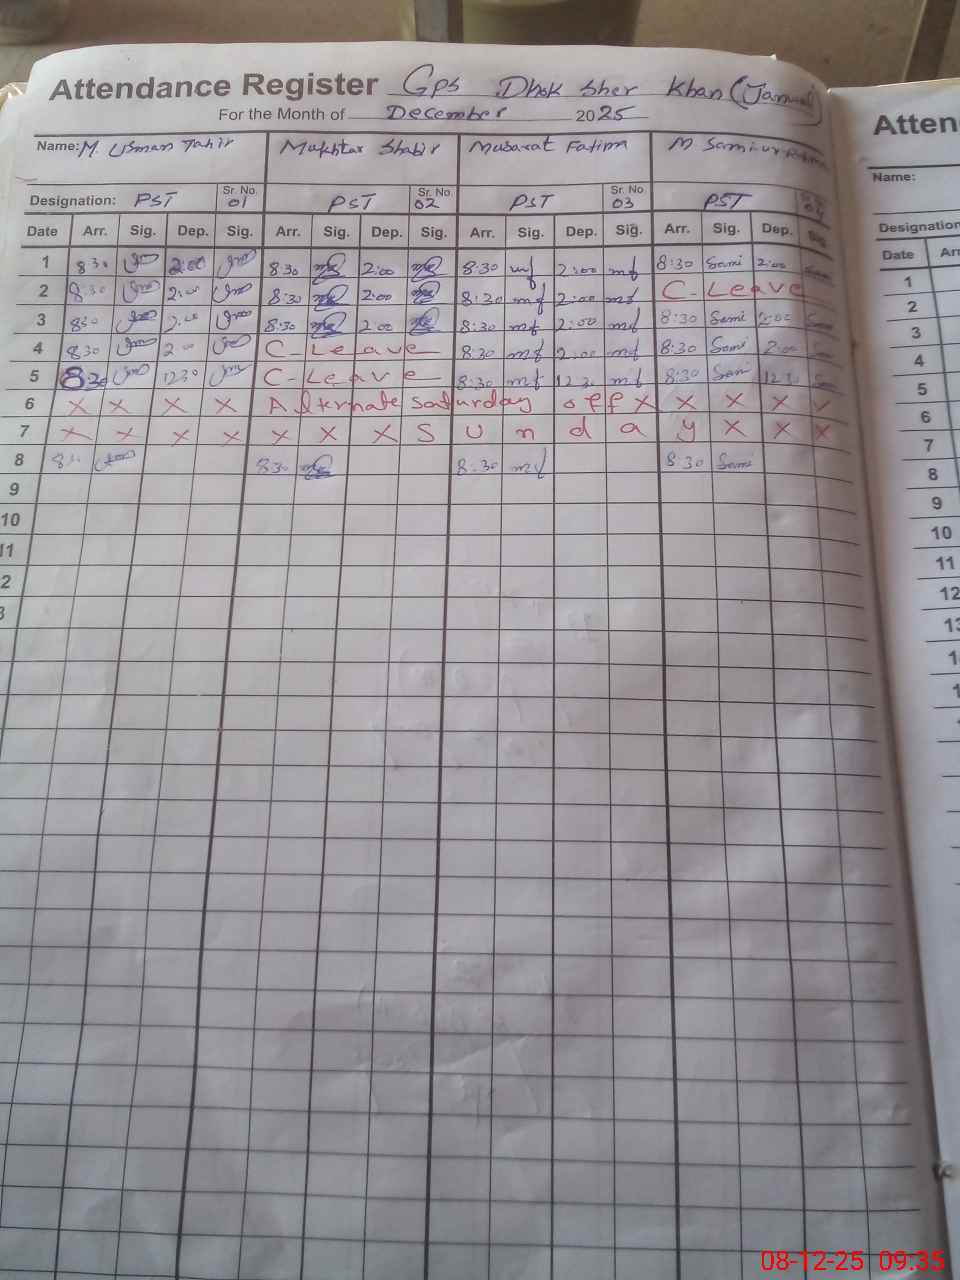 Attendance Register GPS Dhok Sher Khan (Jammat)
For the Month of December 2025
Name: M. Usman Tahir Mukhtar Shabir Musarat Fatima M Sami ur Rehman
Designation: PST Sr. No. 01 PST Sr. No. 02 PST Sr. No. 03 PST
Date Arr. Sig. Dep. Sig. Arr. Sig. Dep. Sig. Arr. Sig. Dep. Sig. Arr. Sig. Dep. Sig.
1 8:30 2:00 8:30 2:00 8:30 mf 2:00 mf 8:30 Sami 2:00
2 8:30 2:00 8:30 2:00 8:30 mf 2:00 mf C-Leave
3 830 2:00 8:30 2:00 8:30 mf 2:00 mf 8:30 Sami 2:00
4 830 200 C-Leave 8:30 mf 2:00 mf 8:30 Sami 2:00
5 830 1230 C-Leave 8:30 mf 1230 mf 8:30 Sami 1230
6 X X X X Alternate Saturday off X X X X X
7 X X X X X X X Sunday X X X
8 830 830 8:30 mf 8:30 Sami
9
10
11
2
3
Atten
Name:
Designation
Date Arr
1
2
3
4
5
6
7
8
9
10
11
12
13
08-12-25 09:35